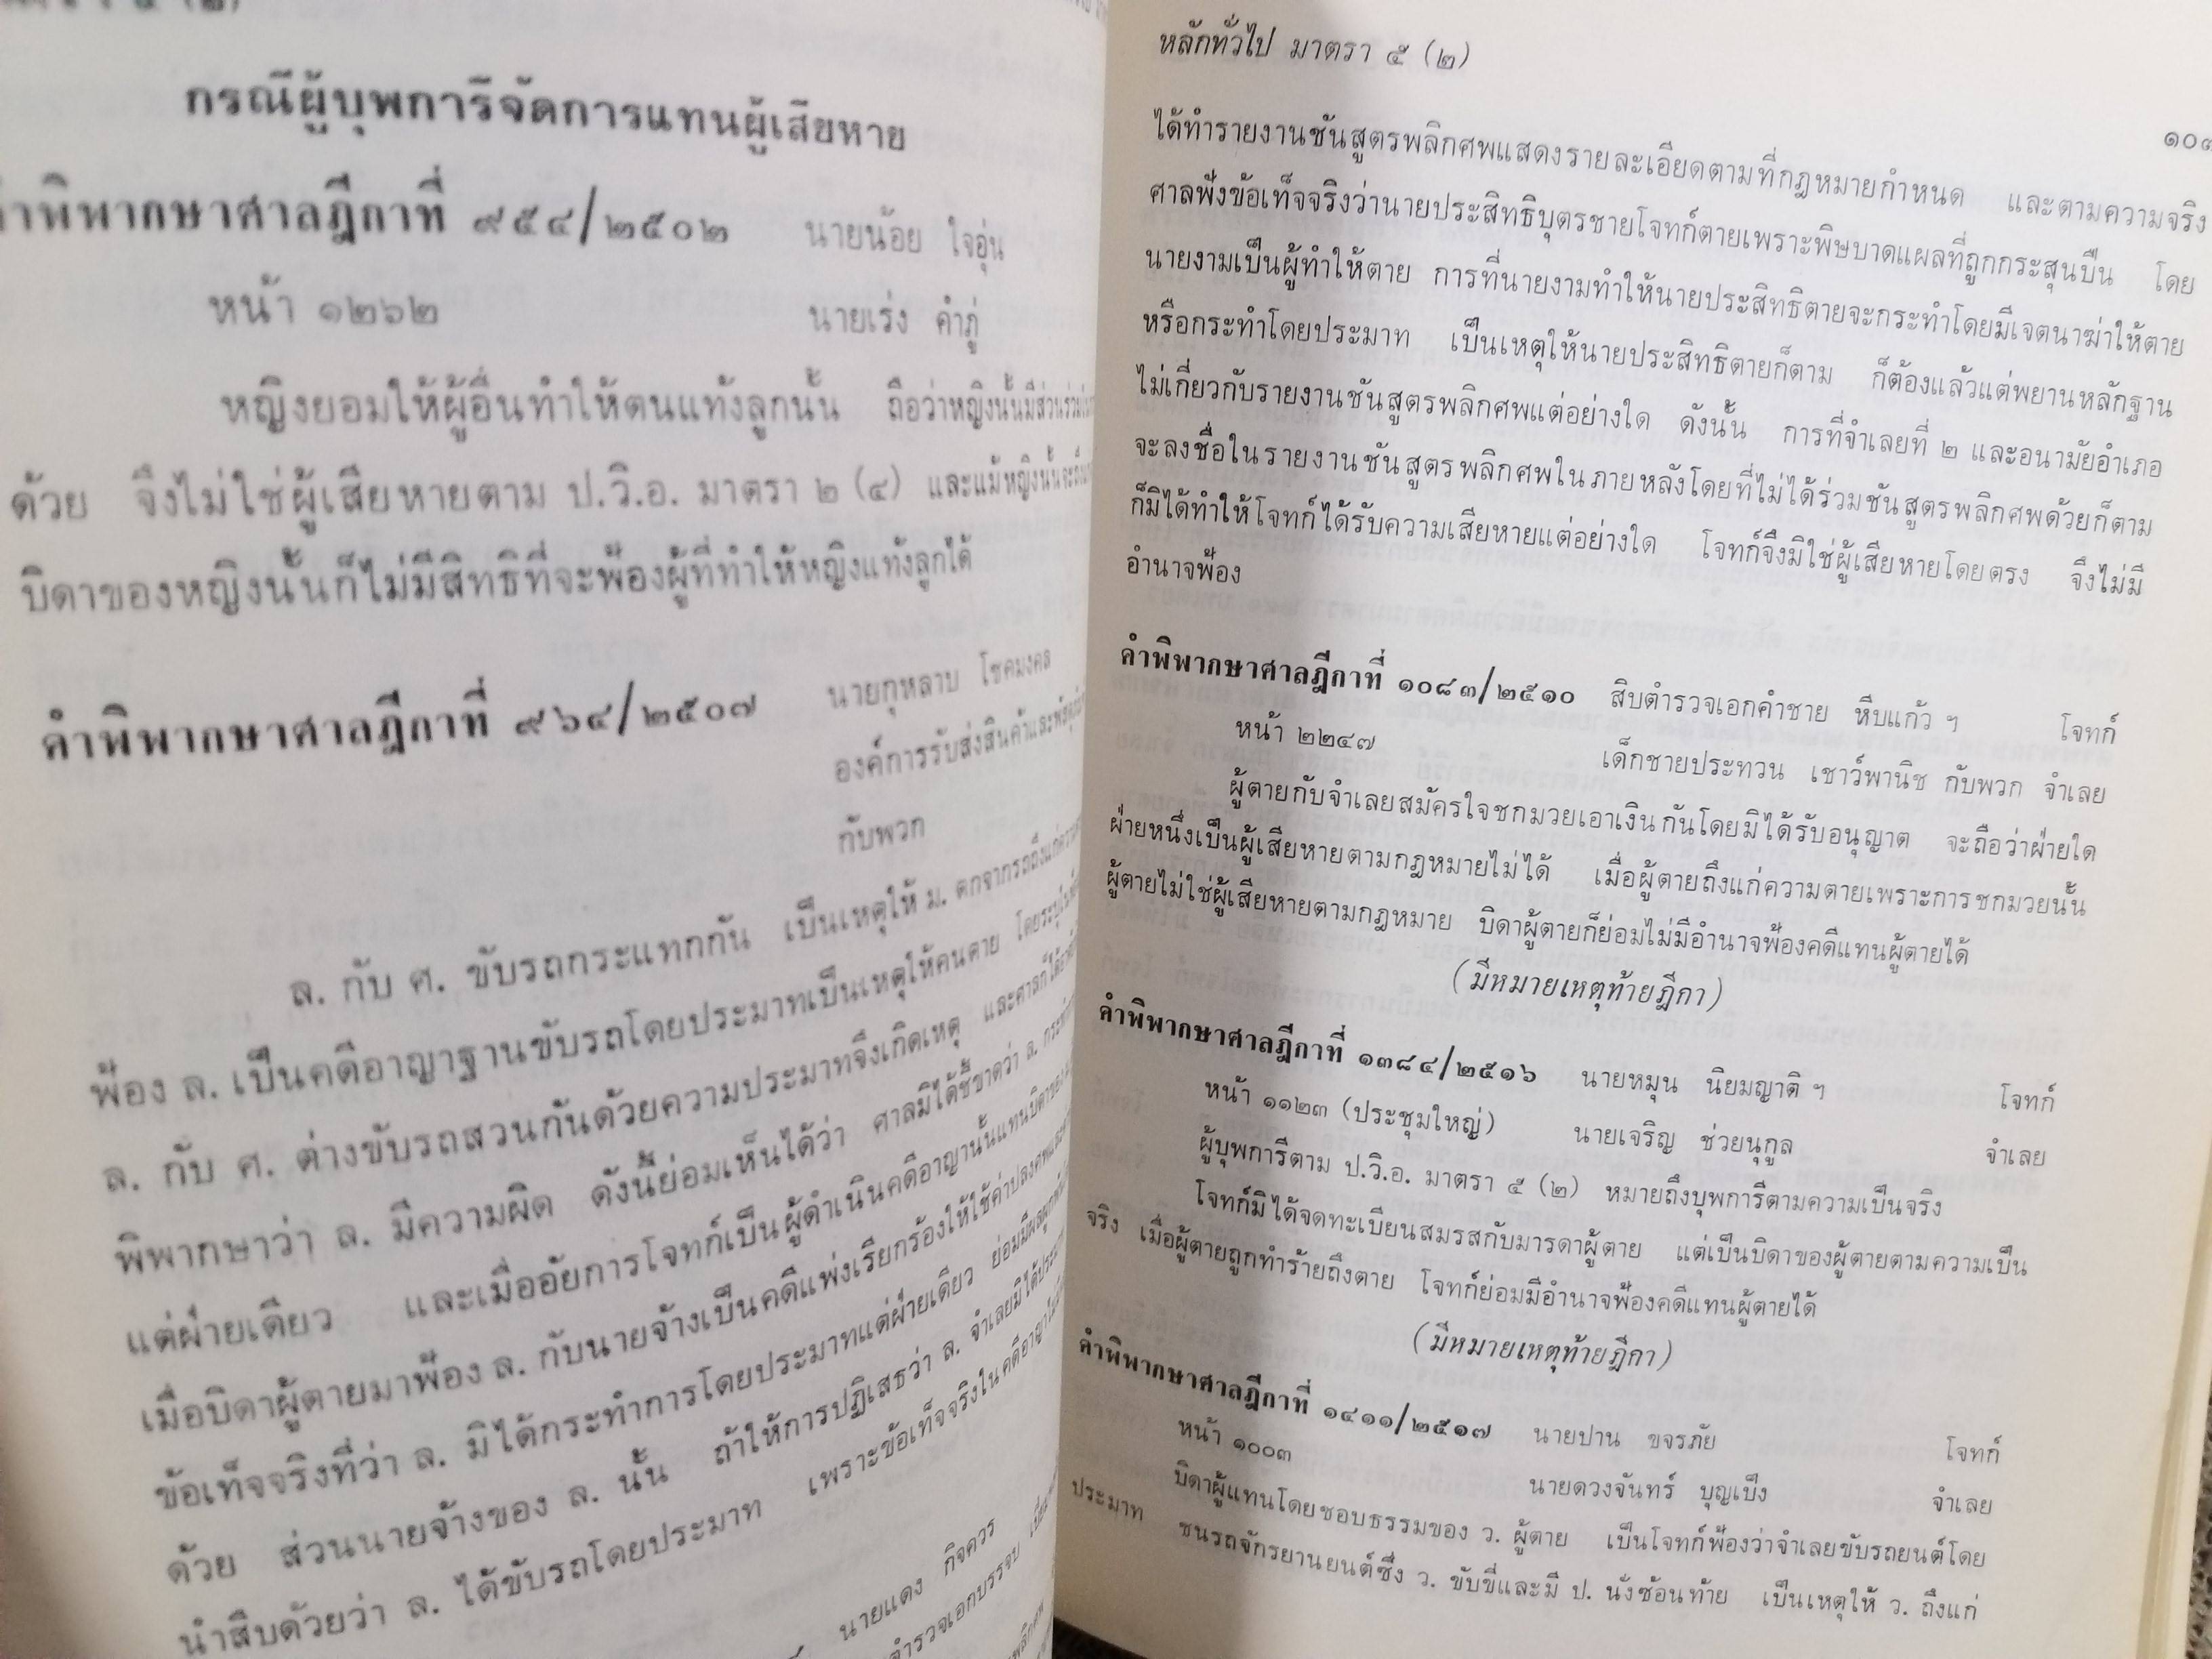 กรณีผู้บุพการีจัดการแทนผู้เสียหาย
คำพิพากษาศาลฎีกาที่ ๙๕๔/๒๕๐๒ นายน้อย ใจอุ่น
หน้า ๑๒๖๒ นายเร่ง คำภู่
หญิงยอมให้ผู้อื่นทำให้ตนแท้งลูกนั้น ถือว่าหญิงนั้นมีส่วนร่วม
ด้วย จึงไม่ใช่ผู้เสียหายตาม ป.วิ.อ. มาตรา ๒ (๔) และแม้หญิงนั้นจะ
บิดาของหญิงนั้นก็ไม่มีสิทธิที่จะฟ้องผู้ที่ทำให้หญิงแท้งลูกได้
คำพิพากษาศาลฎีกาที่ ๙๖๔/๒๕๐๗ นายกุหลาบ โชคมงคล
องค์การรับส่งสินค้าและพัสดุภัณฑ์
กับพวก
ล. กับ ศ. ขับรถกระแทกกัน เป็นเหตุให้ ม. ตกจากรถถึงแก่ความ
ฟ้อง ล. เป็นคดีอาญาฐานขับรถโดยประมาทเป็นเหตุให้คนตาย โดยระบุในฟ้อง
ล. กับ ศ. ต่างขับรถสวนกันด้วยความประมาทจึงเกิดเหตุ และศาลก็ได้
พิพากษาว่า ล. มีความผิด ดังนี้ย่อมเห็นได้ว่า ศาลมิได้ชี้ขาดว่า ล. กระทำ
แต่ฝ่ายเดียว และเมื่ออัยการโจทก์เป็นผู้ดำเนินคดีอาญานั้นแทนบิดาของ
เมื่อบิดาผู้ตายมาฟ้อง ล. กับนายจ้างเป็นคดีแพ่งเรียกร้องให้ใช้ค่าปลงศพและ
ข้อเท็จจริงที่ว่า ล. มิได้กระทำการโดยประมาทแต่ฝ่ายเดียว ย่อมมีผลผูกพัน
ด้วย ส่วนนายจ้างของ ล. นั้น ถ้าให้การปฏิเสธว่า ล. จำเลยมิได้ประมาท
นำสืบด้วยว่า ล. ได้ขับรถโดยประมาท เพราะข้อเท็จจริงในคดีอาญา
นายแดง กิจควร
บรรจบ
หลักทั่วไป มาตรา ๕ (๒)
ได้ทำรายงานชันสูตรพลิกศพแสดงรายละเอียดตามที่กฎหมายกำหนด และตามความจริง
ศาลฟังข้อเท็จจริงว่านายประสิทธิบุตรชายโจทก์ตายเพราะพิษบาดแผลที่ถูกกระสุนปืน โดย
นายงามเป็นผู้ทำให้ตาย การที่นายงามทำให้นายประสิทธิตายจะกระทำโดยมีเจตนาฆ่าให้ตาย
หรือกระทำโดยประมาท เป็นเหตุให้นายประสิทธิตายก็ตาม ก็ต้องแล้วแต่พยานหลักฐาน
ไม่เกี่ยวกับรายงานชันสูตรพลิกศพแต่อย่างใด ดังนั้น การที่จำเลยที่ ๒ และอนามัยอำเภอ
จะลงชื่อในรายงานชันสูตรพลิกศพในภายหลังโดยที่ไม่ได้ร่วมชันสูตรพลิกศพด้วยก็ตาม
ก็มิได้ทำให้โจทก์ได้รับความเสียหายแต่อย่างใด โจทก์จึงมิใช่ผู้เสียหายโดยตรง จึงไม่มี
อำนาจฟ้อง
คำพิพากษาศาลฎีกาที่ ๑๐๘๓/๒๕๑๐ สิบตำรวจเอกคำชาย หีบแก้ว ฯ โจทก์
หน้า ๒๒๔๗ เด็กชายประทวน เชาว์พานิช กับพวก จำเลย
ผู้ตายกับจำเลยสมัครใจชกมวยเอาเงินกันโดยมิได้รับอนุญาต จะถือว่าฝ่ายใด
ฝ่ายหนึ่งเป็นผู้เสียหายตามกฎหมายไม่ได้ เมื่อผู้ตายถึงแก่ความตายเพราะการชกมวยนั้น
ผู้ตายไม่ใช่ผู้เสียหายตามกฎหมาย บิดาผู้ตายก็ย่อมไม่มีอำนาจฟ้องคดีแทนผู้ตายได้
(มีหมายเหตุท้ายฎีกา)
คำพิพากษาศาลฎีกาที่ ๑๓๘๔/๒๕๑๖ นายหมุน นิยมญาติ ฯ โจทก์
หน้า ๑๑๒๓ (ประชุมใหญ่) นายเจริญ ช่วยนุกูล จำเลย
ผู้บุพการีตาม ป.วิ.อ. มาตรา ๕ (๒) หมายถึงบุพการีตามความเป็นจริง
โจทก์มิได้จดทะเบียนสมรสกับมารดาผู้ตาย แต่เป็นบิดาของผู้ตายตามความเป็น
จริง เมื่อผู้ตายถูกทำร้ายถึงตาย โจทก์ย่อมมีอำนาจฟ้องคดีแทนผู้ตายได้
(มีหมายเหตุท้ายฎีกา)
คำพิพากษาศาลฎีกาที่ ๑๔๑๑/๒๕๑๗ นายปาน ขจรภัย โจทก์
หน้า ๑๐๐๓ นายดวงจันทร์ บุญเป็ง จำเลย
บิดาผู้แทนโดยชอบธรรมของ ว. ผู้ตาย เป็นโจทก์ฟ้องว่าจำเลยขับรถยนต์โดย
ประมาท ชนรถจักรยานยนต์ซึ่ง ว. ขับขี่และมี ป. นั่งซ้อนท้าย เป็นเหตุให้ ว. ถึงแก่